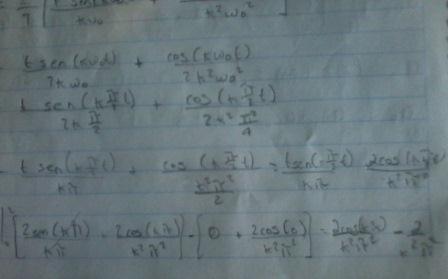 t sen(kω₀t) / 2kω₀ + cos(kω₀t) / 2k²ω₀²
t sen(k π/2 t) / 2k π/2 + cos(k π/2 t) / 2k² π²/4
t sen(k π/2 t) / kπ + cos(k π/2 t) / k²π²/2 = t sen(k π/2 t) / kπ 2cos(k π/2 t) / k²π²
[2sen(kπ) / kπ + 2cos(kπ) / k²π²] - [0 + 2cos(0) / k²π²] = 2cos(kπ) / k²π² - 2 / k²π²